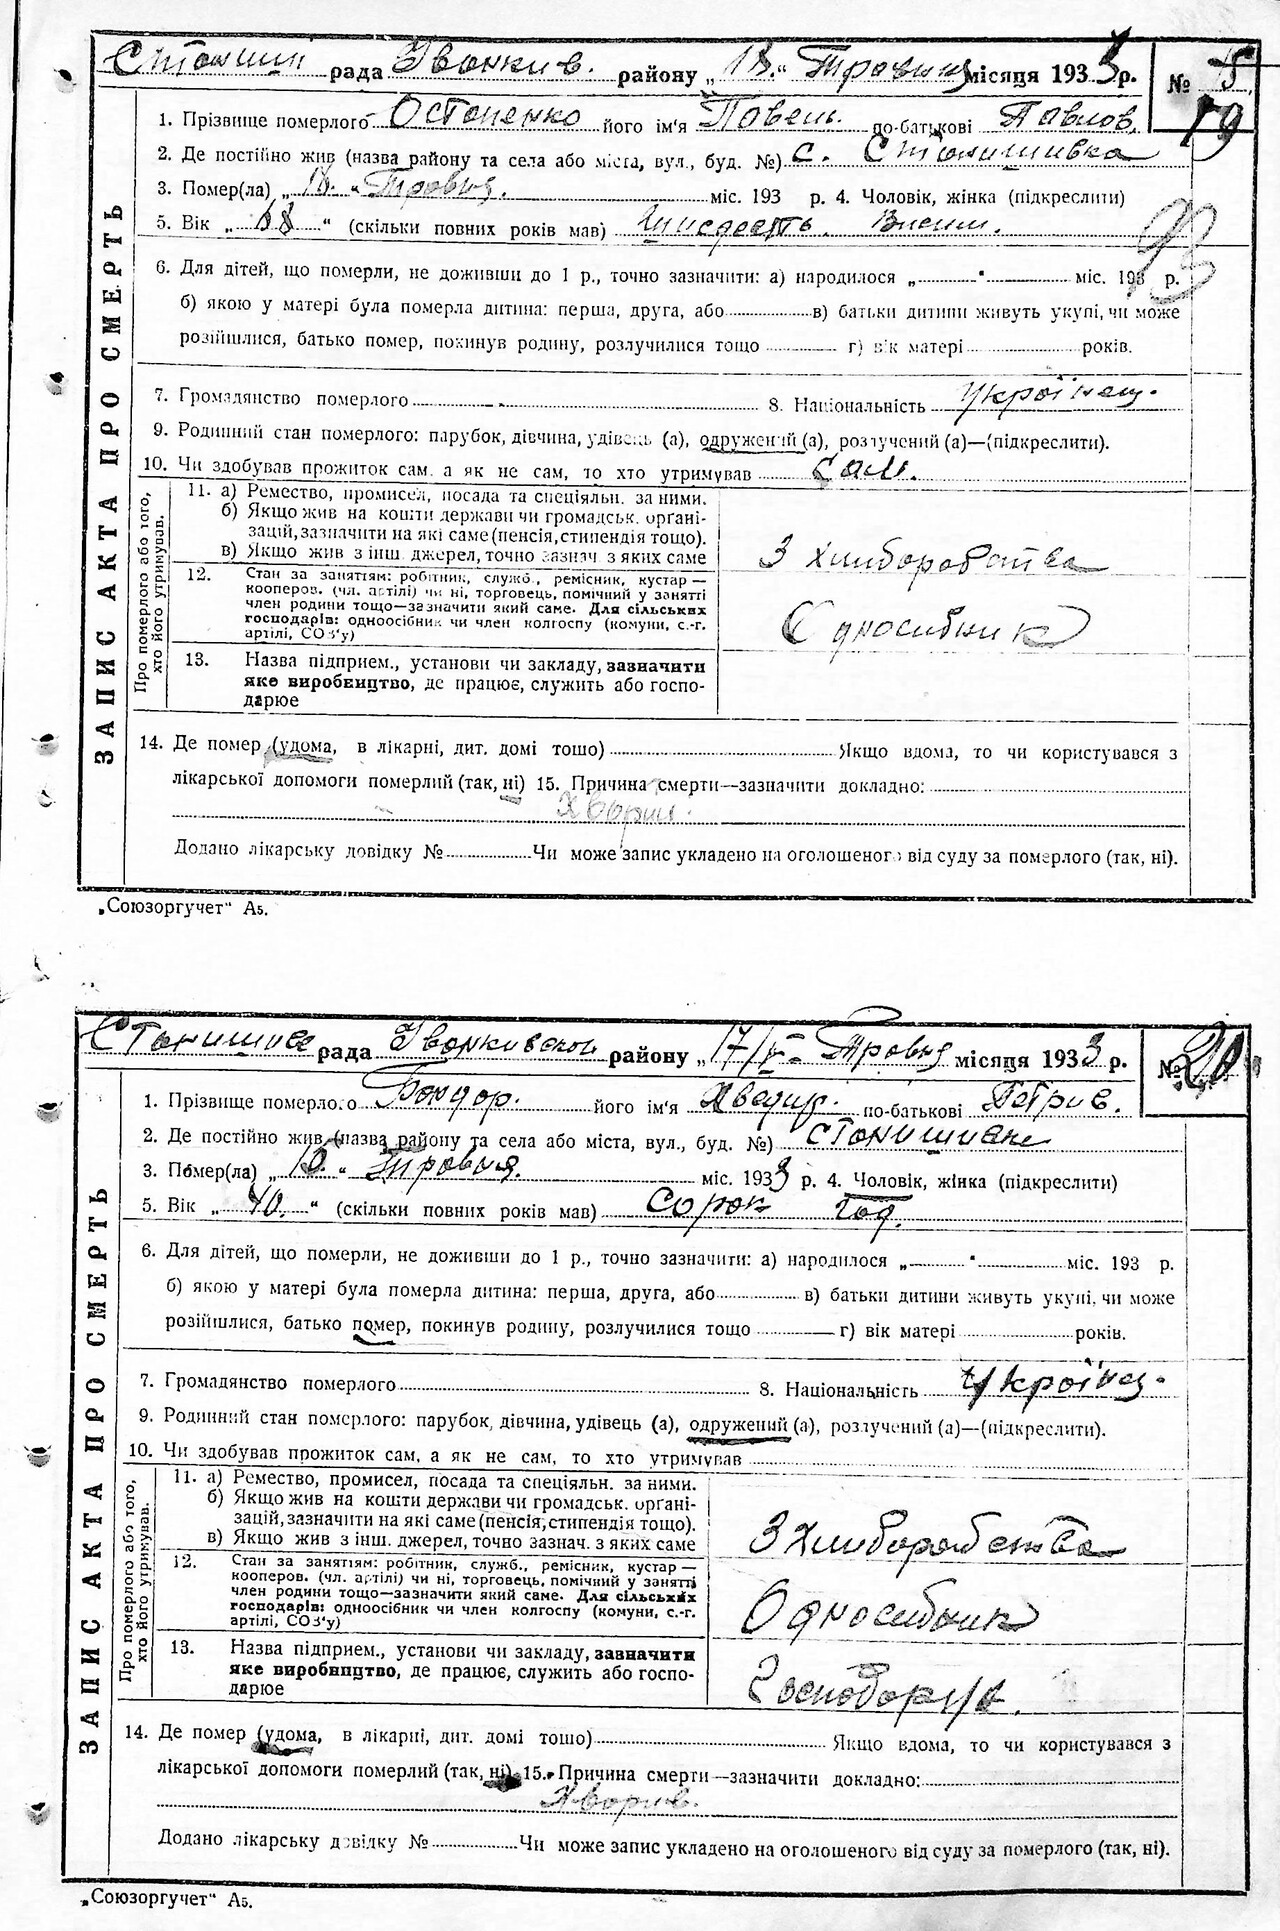 рада Іванків. району „18.“ Травня місяця 1933 р. № 19
ЗАПИС АКТА ПРО СМЕРТЬ
1. Прізвище померлого Остапенко його ім'я Павель. по-батькові Павлов.
2. Де постійно жив (назва району та села або міста, вул., буд. №) с. Станишивка
3. Помер(ла) „18.“ Травня. міс. 193 р. 4. Чоловік, жінка (підкреслити)
5. Вік „68“ (скільки повних років мав) Шисдесять Висим.
93
6. Для дітей, що померли, не доживши до 1 р., точно зазначити: а) народилося „ “ міс. 193 р.
б) якою у матері була померла дитина: перша, друга, або в) батьки дитини живуть укупі, чи може
розійшлися, батько помер, покинув родину, розлучилися тощо г) вік матері років.
7. Громадянство померлого 8. Національність Українец.
9. Родинний стан померлого: парубок, дівчина, удівець (а), одружений (а), розлучений (а)—(підкреслити).
10. Чи здобував прожиток сам, а як не сам, то хто утримував Сам.
Про померлого або того, хто його утримував.
11. а) Ремество, промисел, посада та спеціяльн. за ними.
б) Якщо жив на кошти держави чи громадськ. органі-
зацій, зазначити на які саме (пенсія, стипендія тощо).
в) Якщо жив з інш. джерел, точно зазнач. з яких саме
З хлиборобства
12. Стан за заняттям: робітник, служб., ремісник, кустар —
кооперов. (чл. артілі) чи ні, торговець, помічний у занятті
член родини тощо—зазначити який саме. Для сільських
господарів: одноосібник чи член колгоспу (комуни, с.-г.
артілі, СОЗ'у)
Односибник
13. Назва підприєм., установи чи закладу, зазначити
яке виробництво, де працює, служить або госпо-
дарює
14. Де помер (удома, в лікарні, дит. домі тошо) Якщо вдома, то чи користувався з
лікарської допомоги померлий (так, ні) 15. Причина смерти—зазначити докладно:
Хворив.
Додано лікарську довідку № Чи може запис укладено на оголошеного від суду за померлого (так, ні).
„Союзоргучет“ А5.
рада Іванковской району „17/V“ Травня місяця 1933 р. № 20
ЗАПИС АКТА ПРО СМЕРТЬ
1. Прізвище померлого Бондар. його ім'я Хведир. по-батькові Петрив.
2. Де постійно жив (назва району та села або міста, вул., буд. №)
3. Помер(ла) „ “ Травня. міс. 1933 р. 4. Чоловік, жінка (підкреслити)
5. Вік „40.“ (скільки повних років мав) Сорок год.
6. Для дітей, що померли, не доживши до 1 р., точно зазначити: а) народилося „ “ міс. 193 р.
б) якою у матері була померла дитина: перша, друга, або в) батьки дитини живуть укупі, чи може
розійшлися, батько помер, покинув родину, розлучилися тощо г) вік матері років.
7. Громадянство померлого 8. Національність Українец.
9. Родинний стан померлого: парубок, дівчина, удівець (а), одружений (а), розлучений (а)—(підкреслити).
10. Чи здобував прожиток сам, а як не сам, то хто утримував
Про померлого або того, хто його утримував.
11. а) Ремество, промисел, посада та спеціяльн. за ними.
б) Якщо жив на кошти держави чи громадськ. органі-
зацій, зазначити на які саме (пенсія, стипендія тощо).
в) Якщо жив з інш. джерел, точно зазнач. з яких саме
З хлиборобства
12. Стан за заняттям: робітник, служб., ремісник, кустар —
кооперов. (чл. артілі) чи ні, торговець, помічний у занятті
член родини тощо—зазначити який саме. Для сільських
господарів: одноосібник чи член колгоспу (комуни, с.-г.
артілі, СОЗ'у)
Односибник
13. Назва підприєм., установи чи закладу, зазначити
яке виробництво, де працює, служить або госпо-
дарює
14. Де помер (удома, в лікарні, дит. домі тошо) Якщо вдома, то чи користувався з
лікарської допомоги померлий (так, ні) 15. Причина смерти—зазначити докладно:
Хворив.
Додано лікарську довідку № Чи може запис укладено на оголошеного від суду за померлого (так, ні).
„Союзоргучет“ А5.